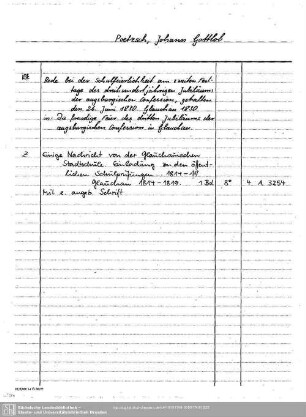 Poetzsch, Johann Gottlob
Rede bei der Schulfeierlichkeit am zweiten Fest-
tage des dreihundertjährigen Jubiläums
der augsburgischen Confession, gehalten
den 26. Juni 1830. Glauchau 1830
in: Die freudige Feier des dritten Jubiläums der
augsburgischen Confession in Glauchau.
2 Einige Nachricht von der Glauchauischen
Stadtschule Einladung zu den öffent-
lichen Schulprüfungen. 1814-19.
Glauchau 1814-1819. 1 Bd 8° 4. A 3254
Mit e. angeb. Schrift
Sächsische Landesbibliothek -
Staats- und Universitätsbibliothek Dresden